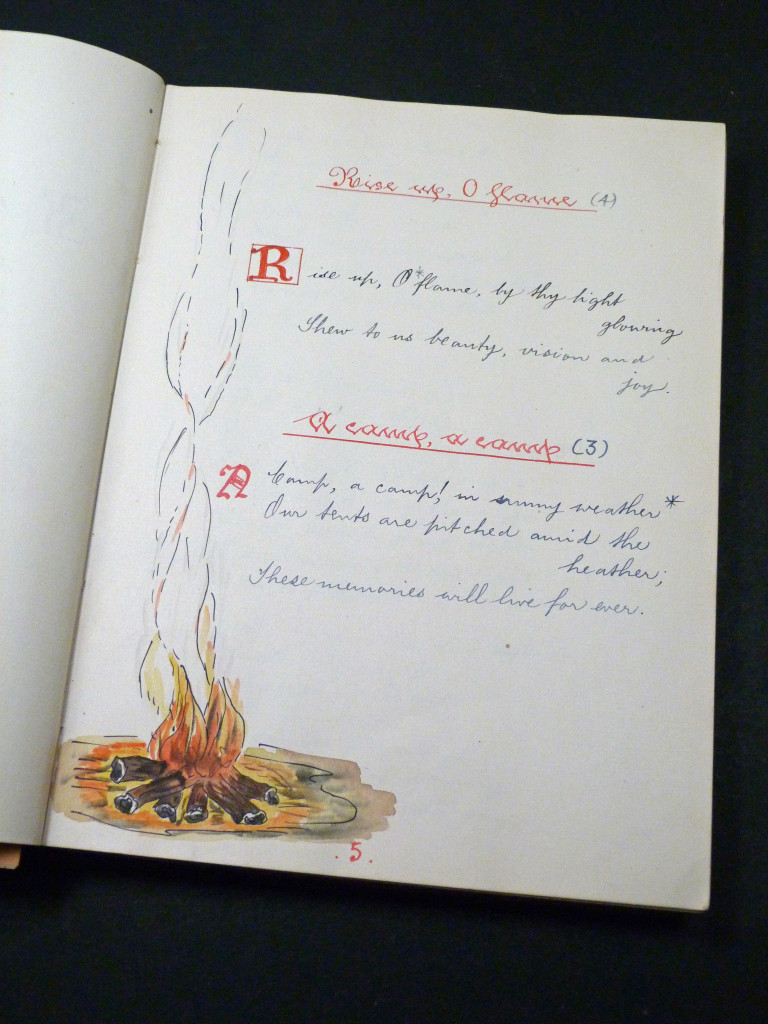 Rise up, O flame (4)
Rise up, O* flame, by thy light
glowing
Shew to us beauty, vision and
joy.
A camp, a camp (3)
A Camp, a camp! in sunny weather*
Our tents are pitched amid the
heather;
These memories will live for ever.
.5.